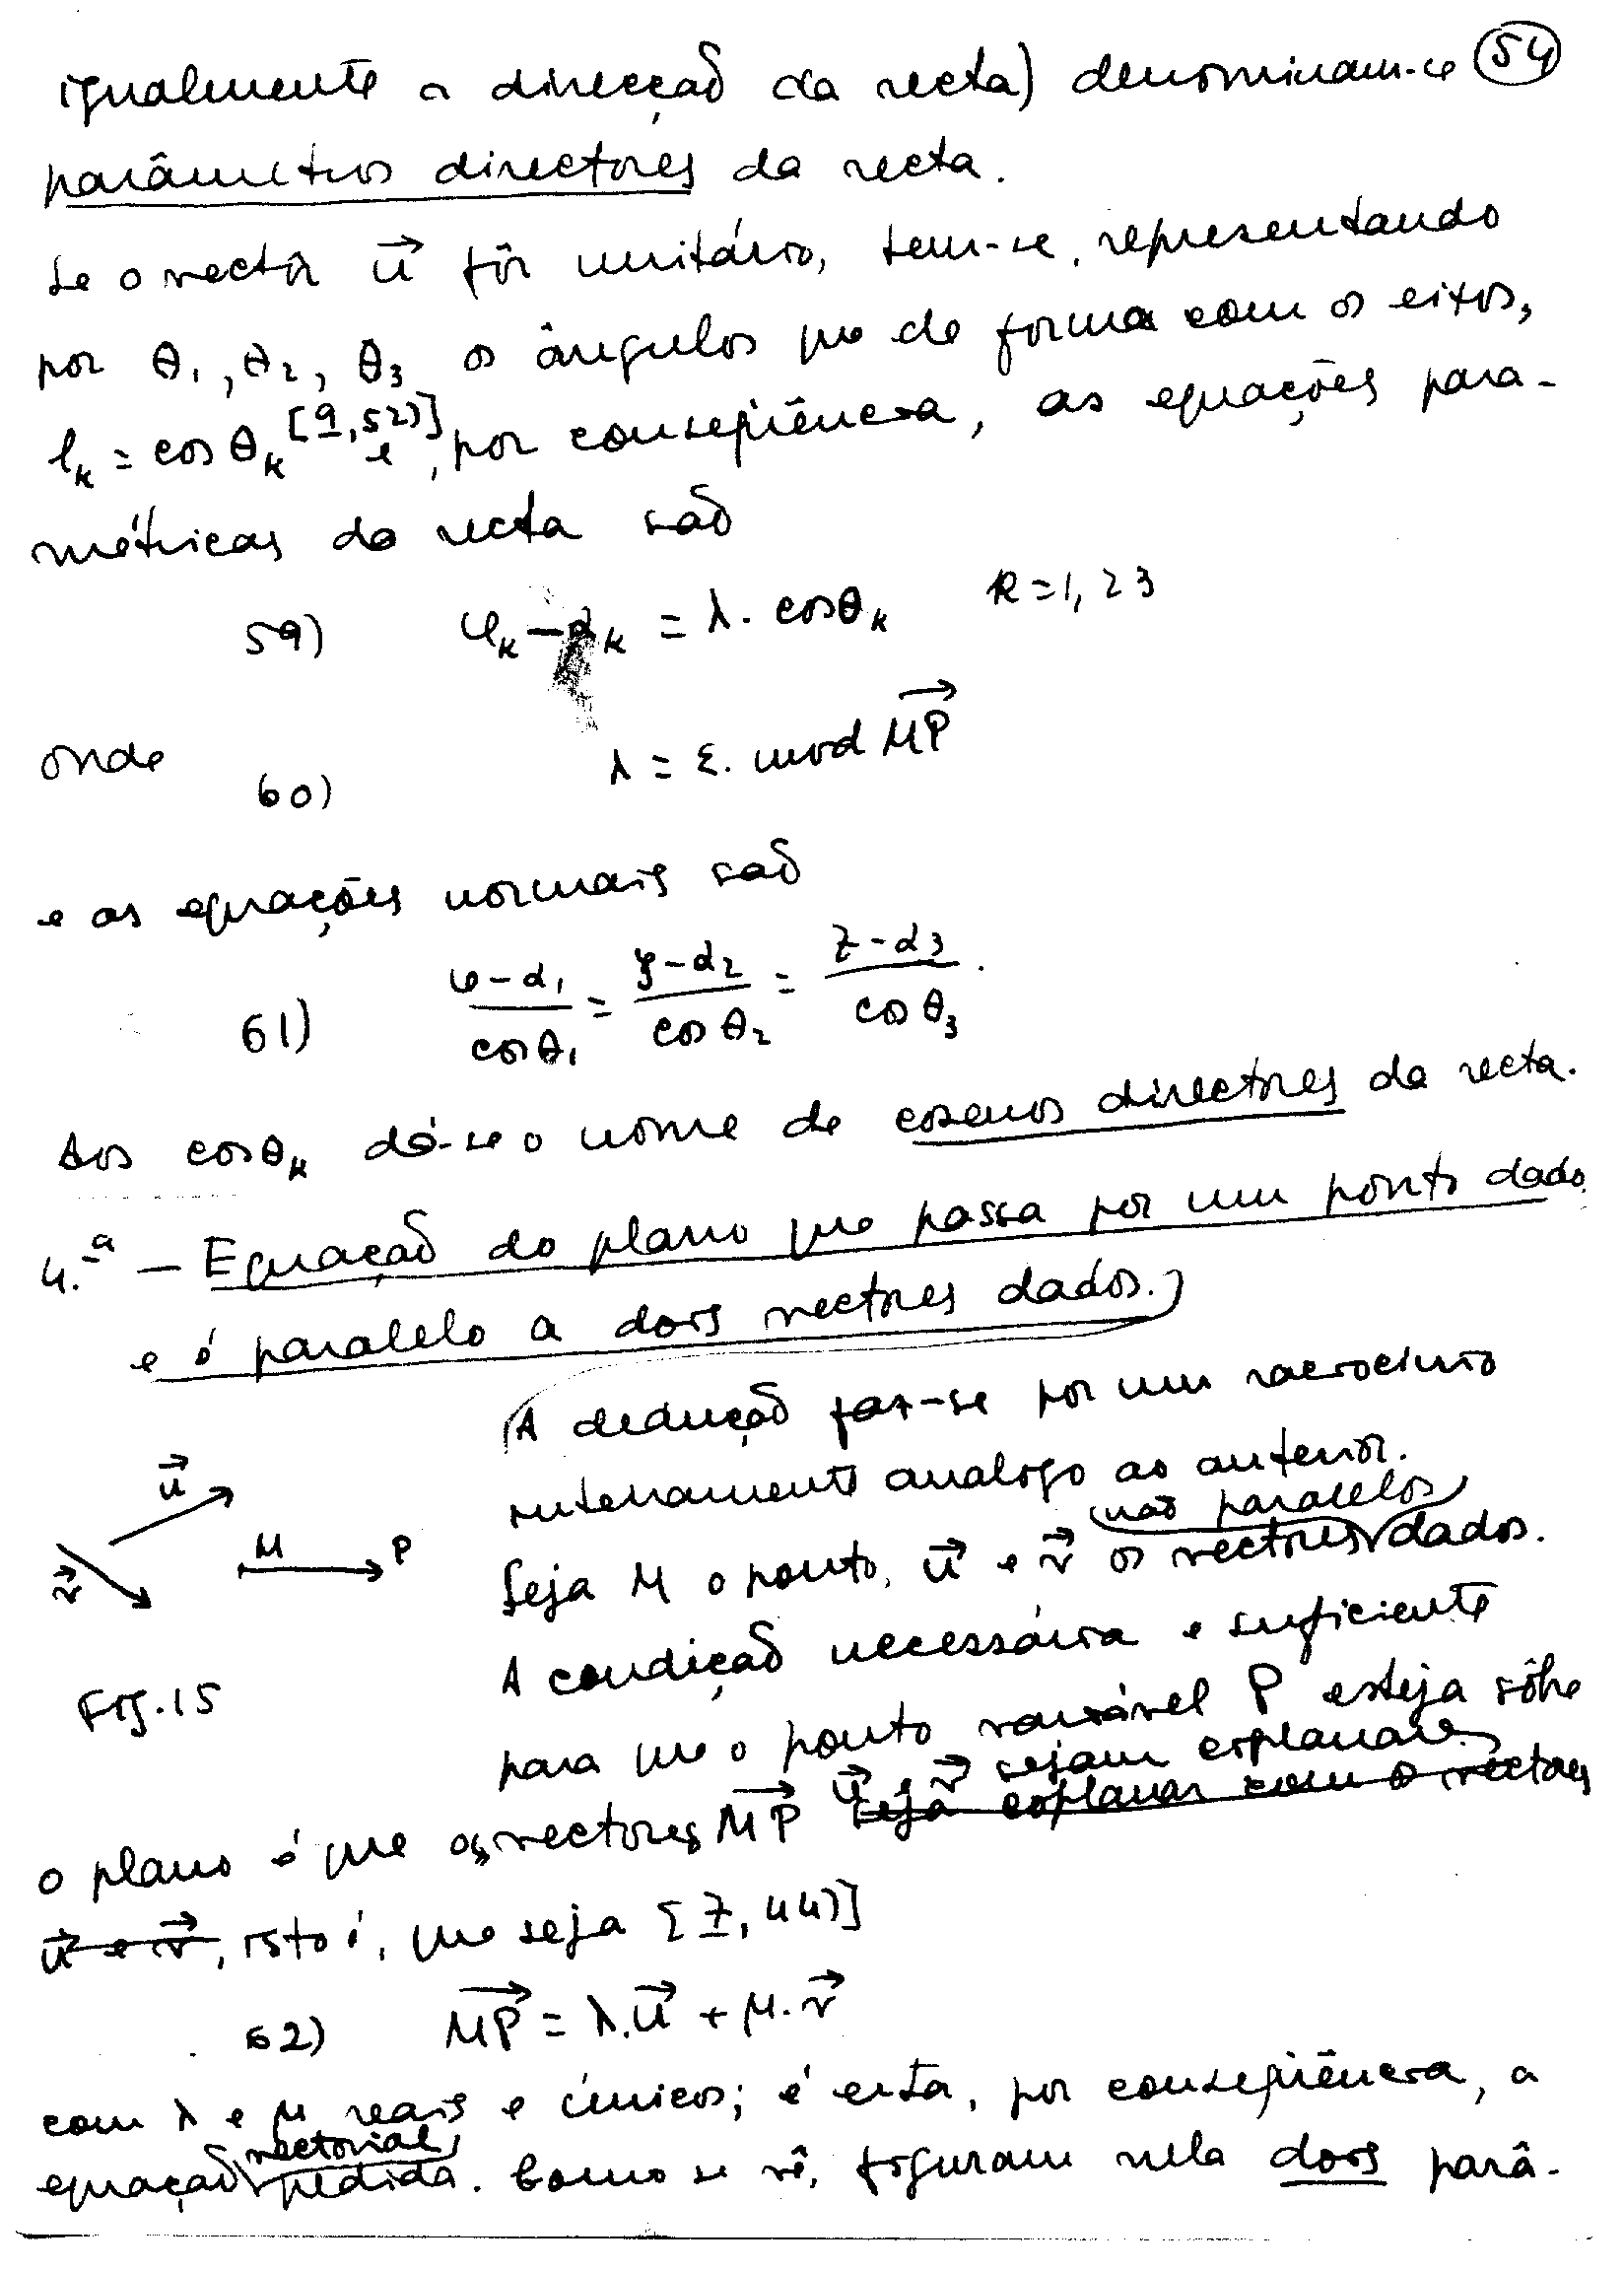 igualmente a direcção da recta) denominam-se (54)
parâmetros directores da recta.
Se o vector u⃗ fôr unitário, tem-se, representando
por θ₁, θ₂, θ₃ os ângulos que êle forma com os eixos,
lₖ = cos θₖ [9, 52)] e, por conseqüência, as equações para-
métricas da recta são
59) φₖ - αₖ = λ. cosθₖ k=1, 2 3
onde
60) λ = ε. mod M⃗P⃗
e as equações normais são
61) (φ - α₁)/(cosθ₁) = (ξ - α₂)/(cos θ₂) = (z - α₃)/(cos θ₃).
Aos cosθₖ dá-se o nome de cosenos directores da recta.
4.ª — Equação do plano que passa por um ponto dado
e é paralelo a dois vectores dados.
A dedução faz-se por um raciocínio
inteiramente analogo ao anterior.
não paralelos
Seja M o ponto, u⃗ e v⃗ os vectores dados.
A condição necessária e suficiente
para que o ponto variável P esteja sôbre
u⃗ e v⃗ sejam coplanares
o plano é que os vectores M⃗P⃗ seja coplanar com os vectores
u⃗ e v⃗, isto é, que seja [7, 44)]
62) M⃗P⃗ = λ.u⃗ + μ.v⃗
com λ e μ reais e únicos; é esta, por conseqüência, a
vectorial
equação pedida. Como se vê, figuram nela dois parâ-
u⃗
M P
v⃗
Fig. 15